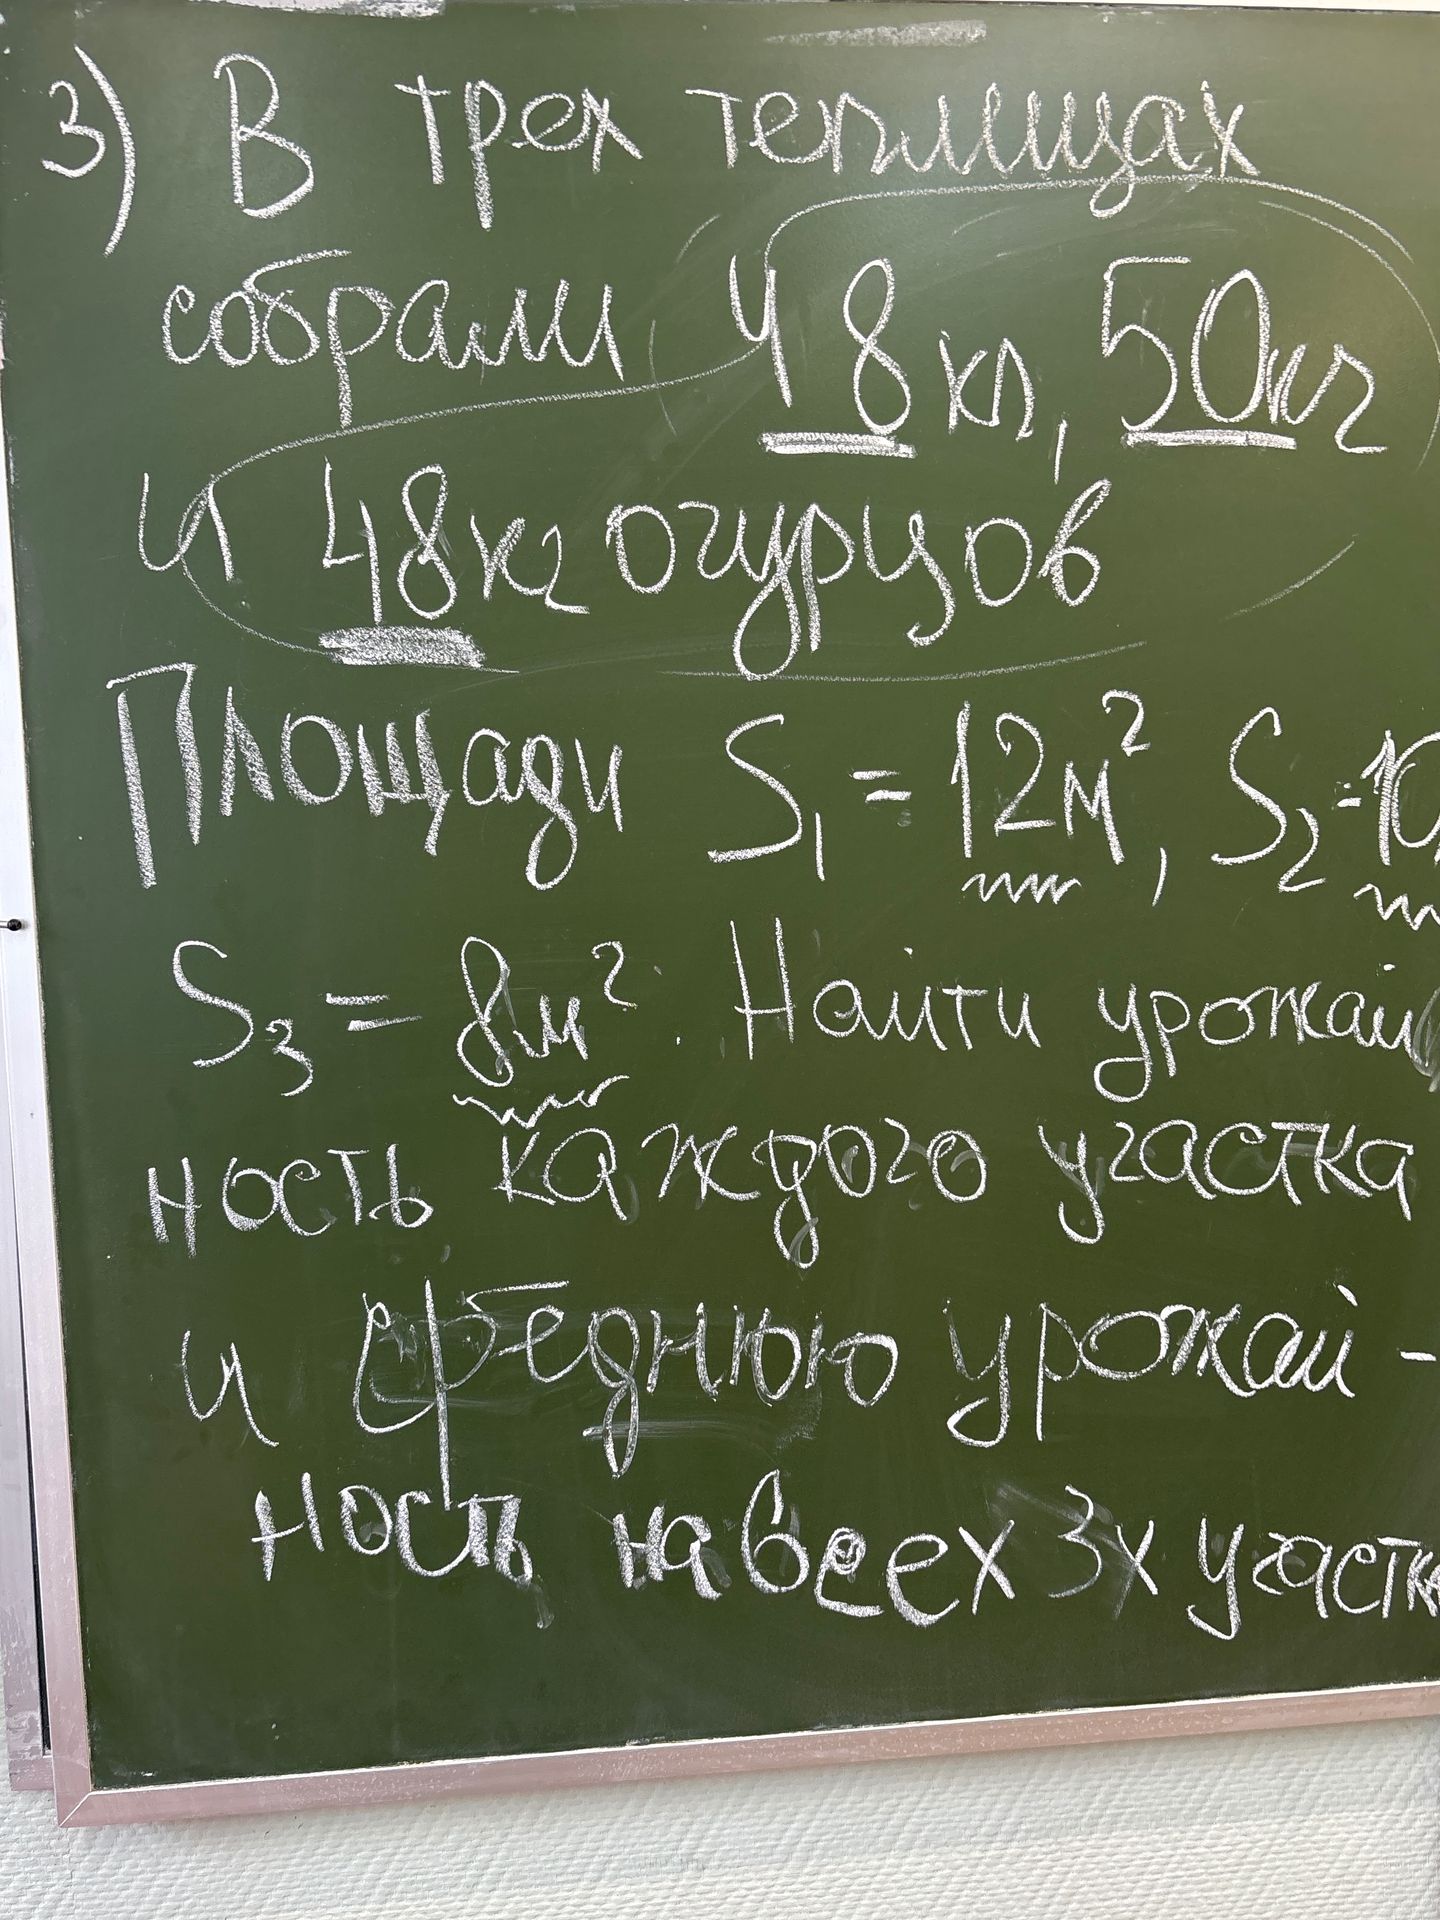 3) В трех теплицах
собрали 48 кг, 50 кг
и 48 кг огурцов
Площади S₁ = 12 м², S₂ = 10
S₃ = 8 м². Найти урожай
ность каждого участка
и среднюю урожай -
ность на всех 3х участк